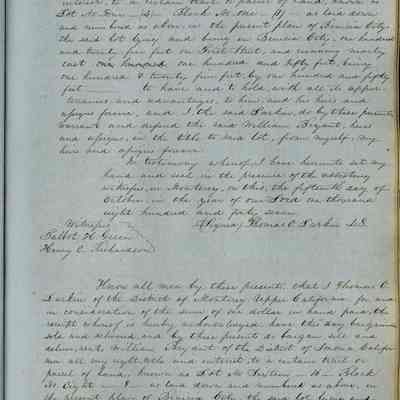 interest, to a certain tract or parcel of land, known as
Lot No Four — (4) — Block No One — (1) — as laid down
and numbered as above, in the present plan of Benicia City
the said lot lying and being in Benicia City, one hundred
and twenty five feet on First Street, and running ninety
east one hundred one hundred and fifty feet, being
one hundred & twenty five feet, by one hundred and fifty
feet — to have and to hold, with all its appur-
tenances and advantages, to him, and his heirs and
assigns forever, and I the said Larkin, do by these presents
warrant and defend the said William Bryant, heirs
and assigns, in the title to said lot, from myself, my
heirs and assigns forever
In testimony whereof I have hereunto set my
hand and seal, in the presence of the
witnesses, in Monterey, on this, the fifteenth day of
October, in the year of our Lord one thousand
eight hundred and forty seven
Witnesses (Signed) Thomas O. Larkin L.S.
Talbot H. Green
Henry C. Richardson
Know all men by these presents that I Thomas O.
Larkin of the District of Monterey Upper California for and
in consideration of the sum of one dollar in hand paid, the
receipt whereof is hereby acknowledged have this day bargained
sold and released, and by these presents do bargain sell and
release, unto William Bryant of the District of Sonoma Califor-
nia all my right, title and interest, to a certain tract or
parcel of land, known as Lot No Sixteen — 16 — Block
No Eight — as laid down and numbered as above, in
the present plan of Benicia City, the said lot lying and